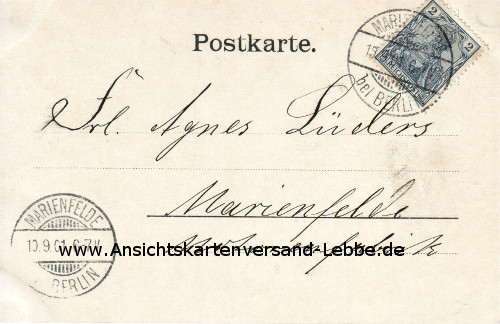 Postkarte.
2 2
MARIENFELDE
bei BERLIN
Frl. Agnes Lüders
Marienfelde
MARIENFELDE
10.9.01. 6-7V.
BERLIN
www.Ansichtskartenversand-Lebbe.de